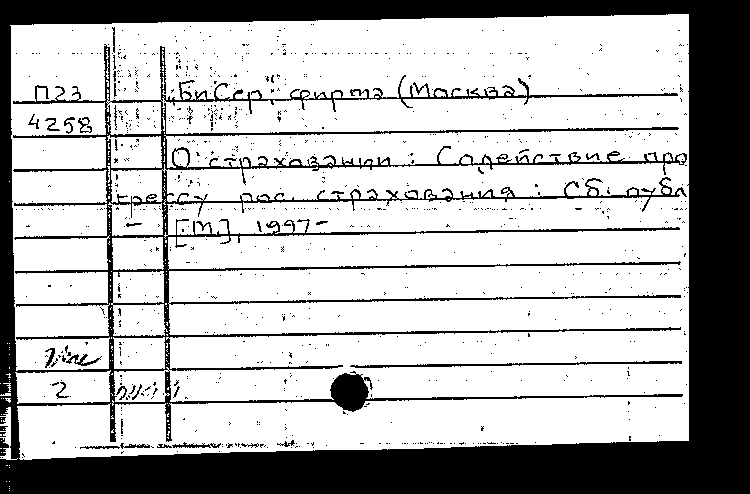 П23
„БиСер“, фирма (Москва)
4258
О страховании : Содействие про
грессу рос. страхования : Сб. публ
- [М.], 1997-
2